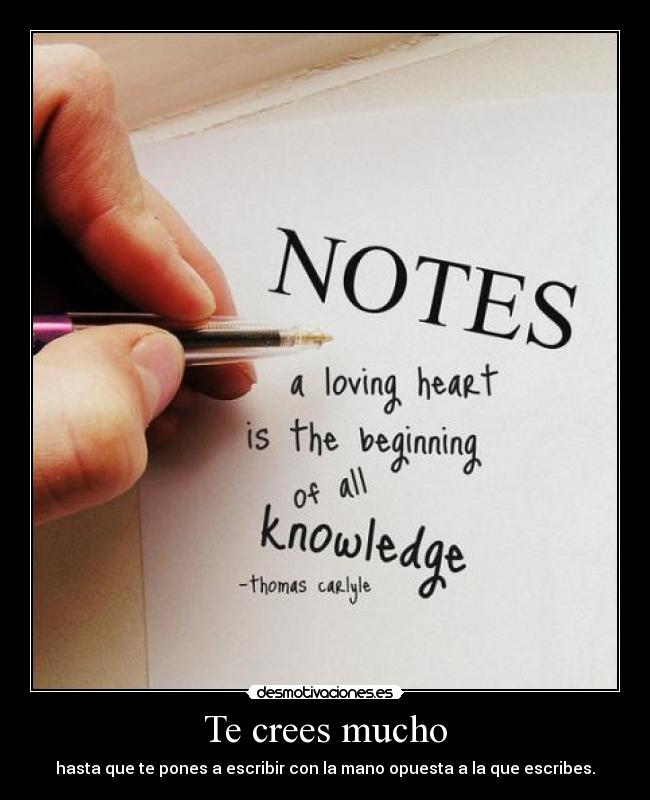 NOTES
a loving heart
is the beginning
of all
knowledge
-thomas carlyle
desmotivaciones.es
Te crees mucho
hasta que te pones a escribir con la mano opuesta a la que escribes.